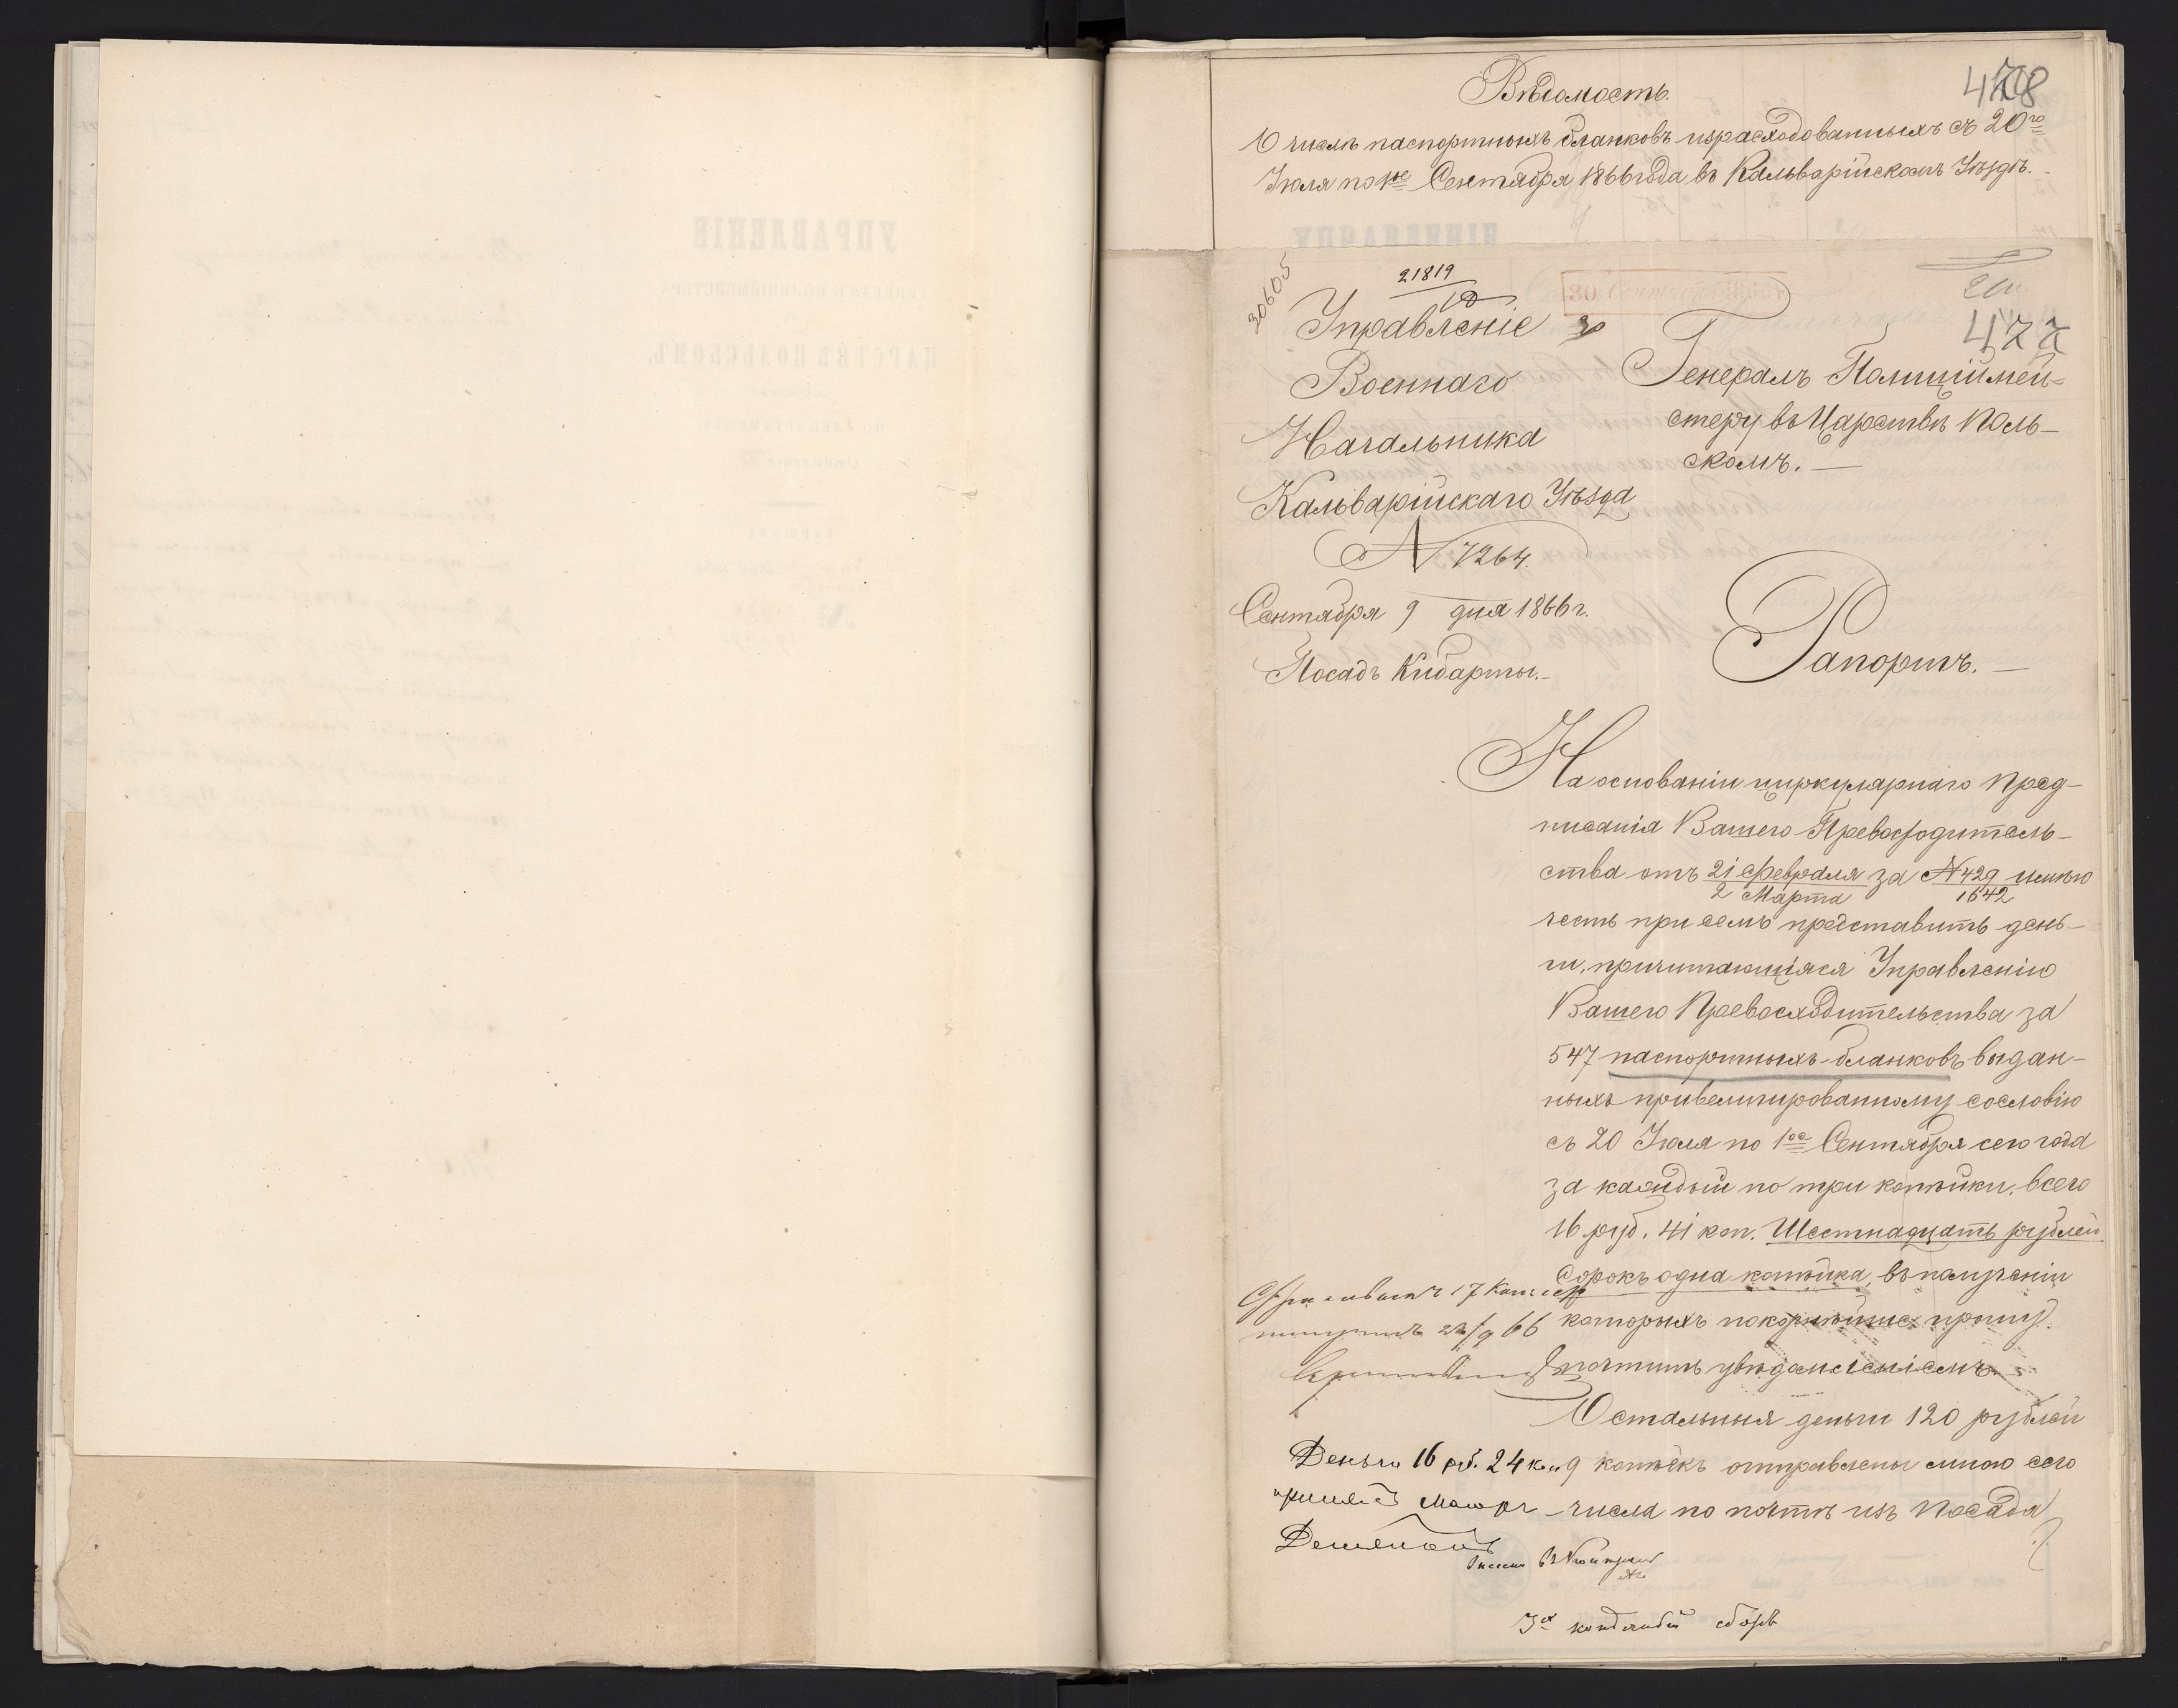 Вѣдомость.
478
О числѣ паспортныхъ бланковъ израсходованныхъ съ 20го
Іюля по 1ое Сентября 1866 года въ Кальварійскомъ Уѣздѣ.
30605
21819
30 Сентября 1866
477
Управленіе
Военнаго
Начальника
Кальварійскаго Уѣзда
N 7264.
Сентября 9 дня 1866 г.
Посадъ Кибарты.-
Генералъ Полиціймей-
стеру въ Царствѣ Поль-
скомъ.—
Рапортъ.—
На основаніи циркулярнаго пред-
писанія Вашего Превосходитель-
ства отъ 21 Февраля за N 429 имѣю
2 Марта 1642
честь при семъ представить день-
ги, причитающіяся Управленію
Вашего Превосходительства за
547 паспортныхъ бланковъ выдан-
ныхъ привелигированному сословію
съ 20 Іюля по 1ое Сентября сего года
за каждый по три копѣйки, всего
16 руб. 41 коп. Шестнадцать рублей
сорокъ одна копѣйка, въ полученіи
которыхъ покорнѣйше прошу
почтить увѣдомленіемъ.-
Остальныя деньги 120 рублей
9 копѣекъ отправлены мною сего
числа по почтѣ изъ Посада
17 коп.
66
Деньги 16 руб. 24 к.
принялъ Маіоръ